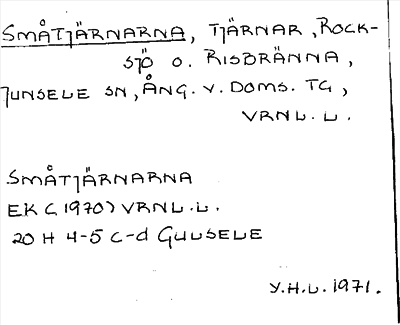 SMÅTJÄRNARNA, TJÄRNAR, ROCK-
SJÖ O. RISBRÄNNA,
JUNSELE SN, ÅNG. V. DOMS. TG,
VRNL. L.
SMÅTJÄRNARNA
EK (1970) VRNL. L.
20 H 4-5 C-d GULSELE
Y.H.L. 1971.